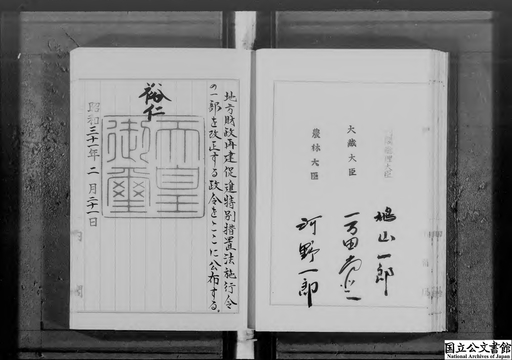 地方財政再建促進特別措置法施行令
の一部を改正する政令をここに公布する。
裕仁
天皇
御璽
昭和三十一年二月二十一日
内閣総理大臣
鳩山一郎
大蔵大臣
一万田尚登
農林大臣
河野一郎
国立公文書館
National Archives of Japan